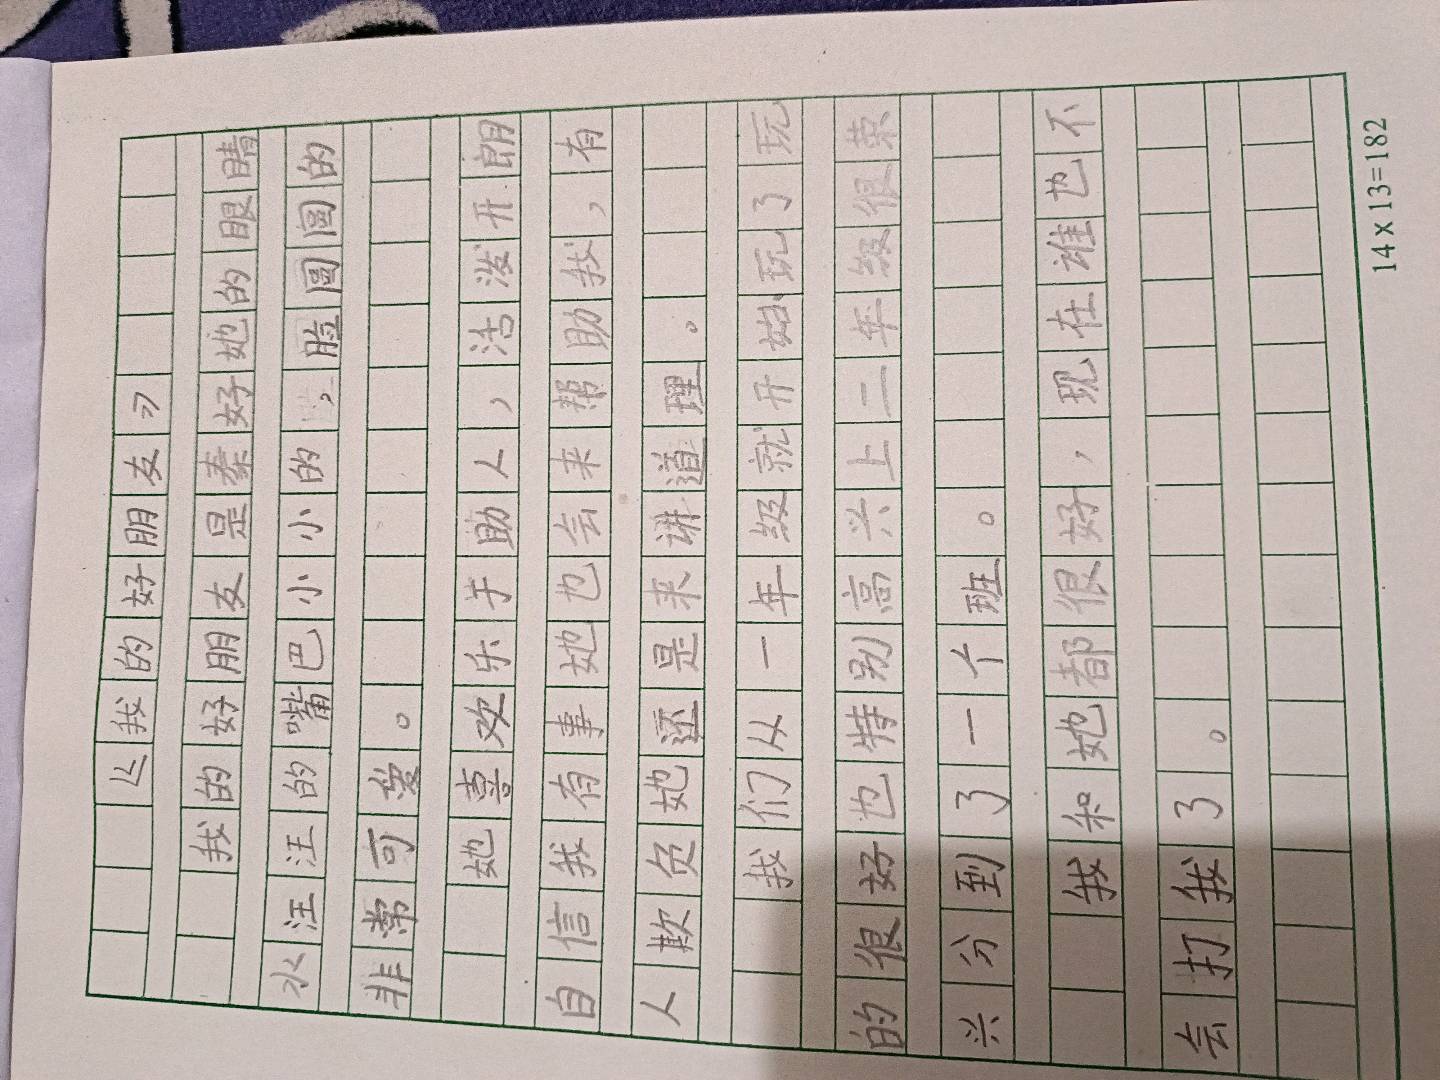 《我的好朋友》
我的好朋友是秦好她的眼睛
水汪汪的嘴巴小小的，脸圆圆的
非常可爱。
她喜欢乐于助人，活泼开朗
自信我有事她也会来帮助我，有
人欺负她还是来讲道理。
我们从一年级就开始玩了玩
的很好也特别高兴上二年级很荣
兴分到了一个班。
我和她都很好，现在谁也不
会打我了。
14×13=182